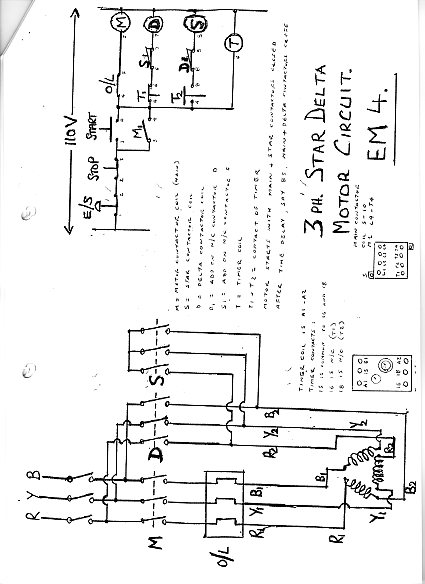 3 PH. STAR DELTA
MOTOR CIRCUIT.
EM 4.
110V
E/S
STOP
START
M1
O/L
T1
T2
S1
D1
M
D
S
T
M = MOTOR CONTACTOR COIL (MAIN)
S = STAR CONTACTOR COIL
D = DELTA CONTACTOR COIL
D1 = ADD ON N/C CONTACTOR D
S1 = ADD ON N/C CONTACTOR S
T = TIMER COIL
T1 T2 = CONTACT OF TIMER
MOTOR STARTS WITH MAIN & STAR CONTACTORS CLOSED
AFTER TIME DELAY, SAY 8S. MAIN + DELTA CONTACTORS CLOSE
MAIN CONTACTOR
TIMER COIL IS A1 - A2
TIMER CONTACTS:
15 IS COMMON TO 16 AND 18
16 IS N/C (T1)
18 IS N/O (T2)
R Y B
M
D
S
O/L
R1
Y1
B1
R2
Y2
B2
R1
Y1
B1
R2
Y2
B2